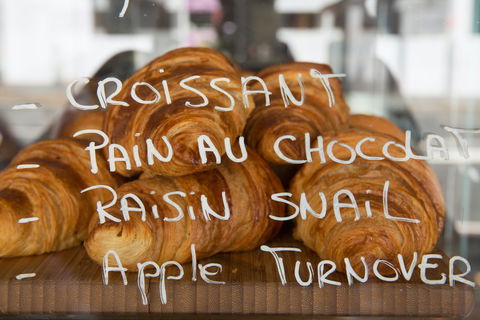 - CROISSANT
- PAIN AU CHOCOLAT
- RAISIN SNAIL
- Apple TURNOVER